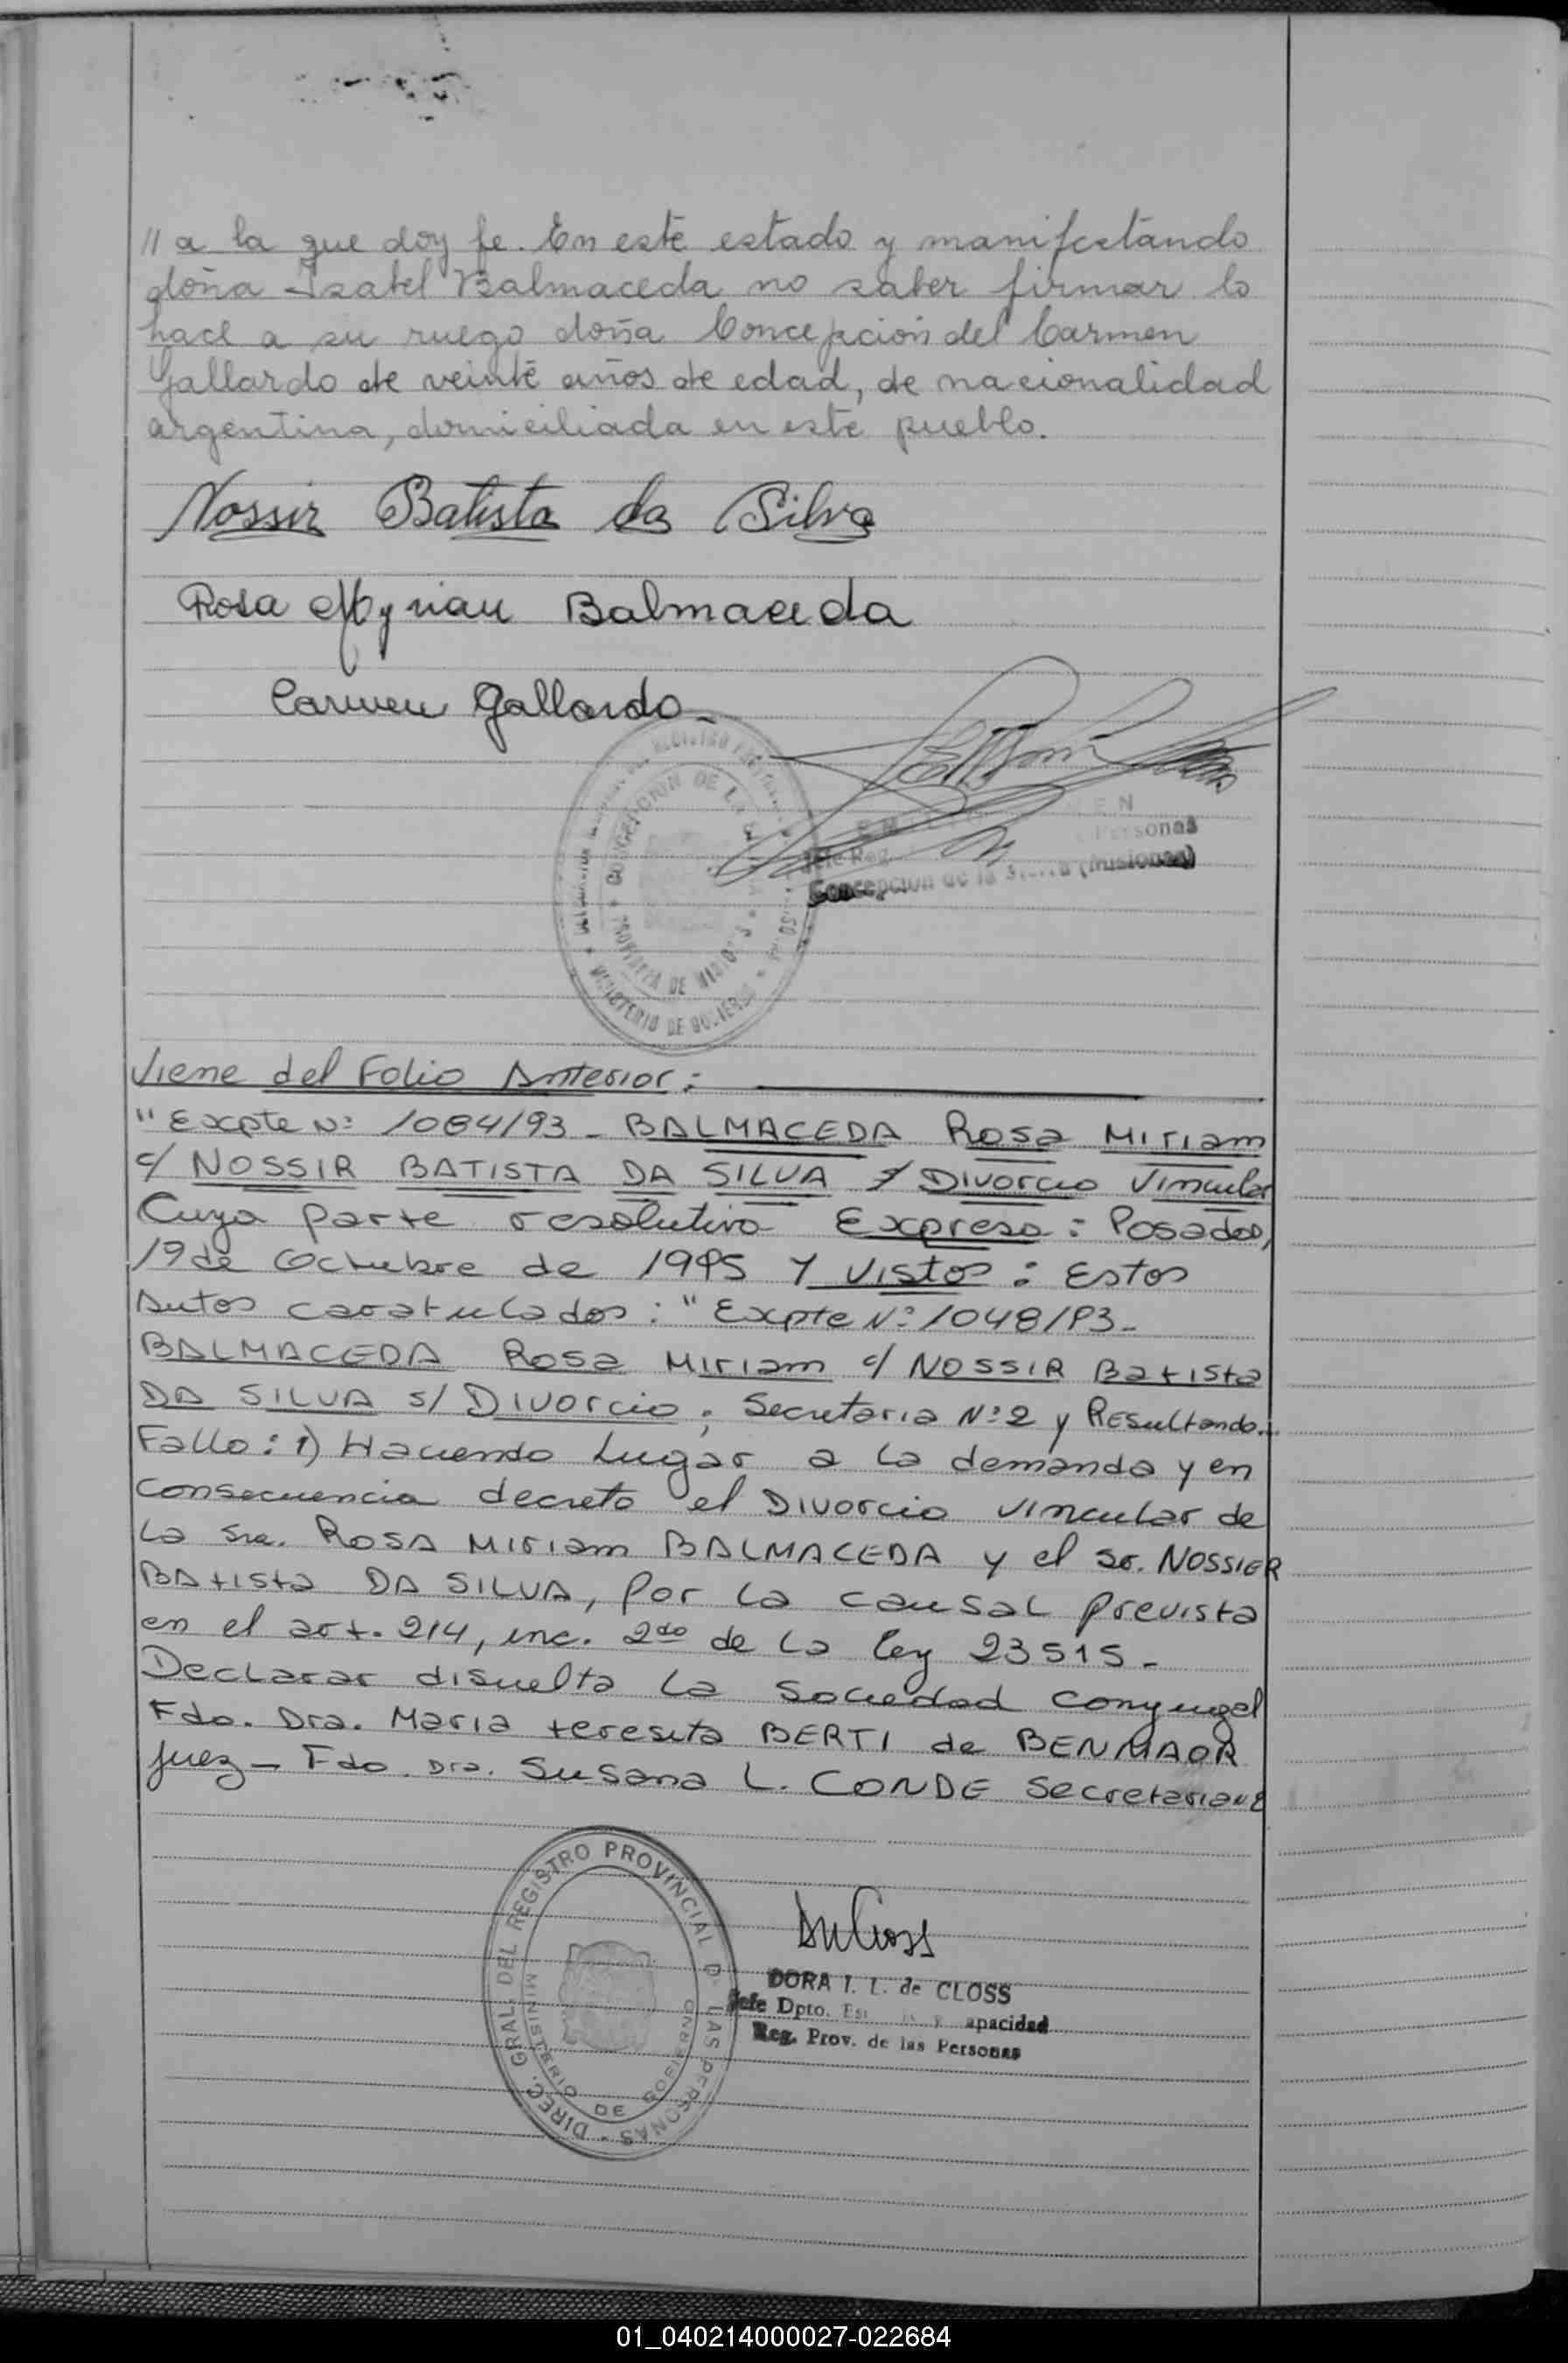 // a la que doy fe. En este estado y manifestando
doña Isabel Balmaceda no saber firmar lo
hace a su ruego doña Concepción del Carmen
Gallardo de veinte años de edad, de nacionalidad
argentina, domiciliada en este pueblo.
Nossir Batista da Silva
Rosa Myrian Balmaceda
Carmen Gallardo.-
CONCEPCION DE LA
PROVINCIA DE MISIONES
MINISTERIO DE GOBIERNO
Jefe Reg. Personas
Concepcion de la Sierra (Misiones)
Viene del Folio Anterior:
"Expte Nº 1084/93 - BALMACEDA Rosa Miriam
c/ NOSSIR BATISTA DA SILVA s/ Divorcio Vincular
Cuya parte resolutiva Expresa: Posadas,
19 de Octubre de 1995 Y Vistos: Estos
Autos caratulados: "Expte Nº 1048/93-
BALMACEDA Rosa Miriam c/ NOSSIR Batista
DA SILVA s/ Divorcio; Secretaria Nº 2 y Resultando...
Fallo: 1) Haciendo Lugar a la demanda y en
Consecuencia decreto el Divorcio vincular de
la Sra. ROSA Miriam BALMACEDA y el Sr. NOSSIER
BAtista DA SILVA, por la causal prevista
en el art. 214, inc. 2do de la ley 23515-
Declarar disuelta la sociedad conyugal
Fdo. Dra. Maria teresita BERTI de BENMAOR
Juez - Fdo. Dra. Susana L. CONDE Secretaria
DIREC. GRAL. DEL REGISTRO PROVINCIAL D LAS PERSONAS -
MINISTERIO DE
DORA I. L. de CLOSS
Jefe Dpto. apacidad
Reg. Prov. de las Personas
01_040214000027-022684